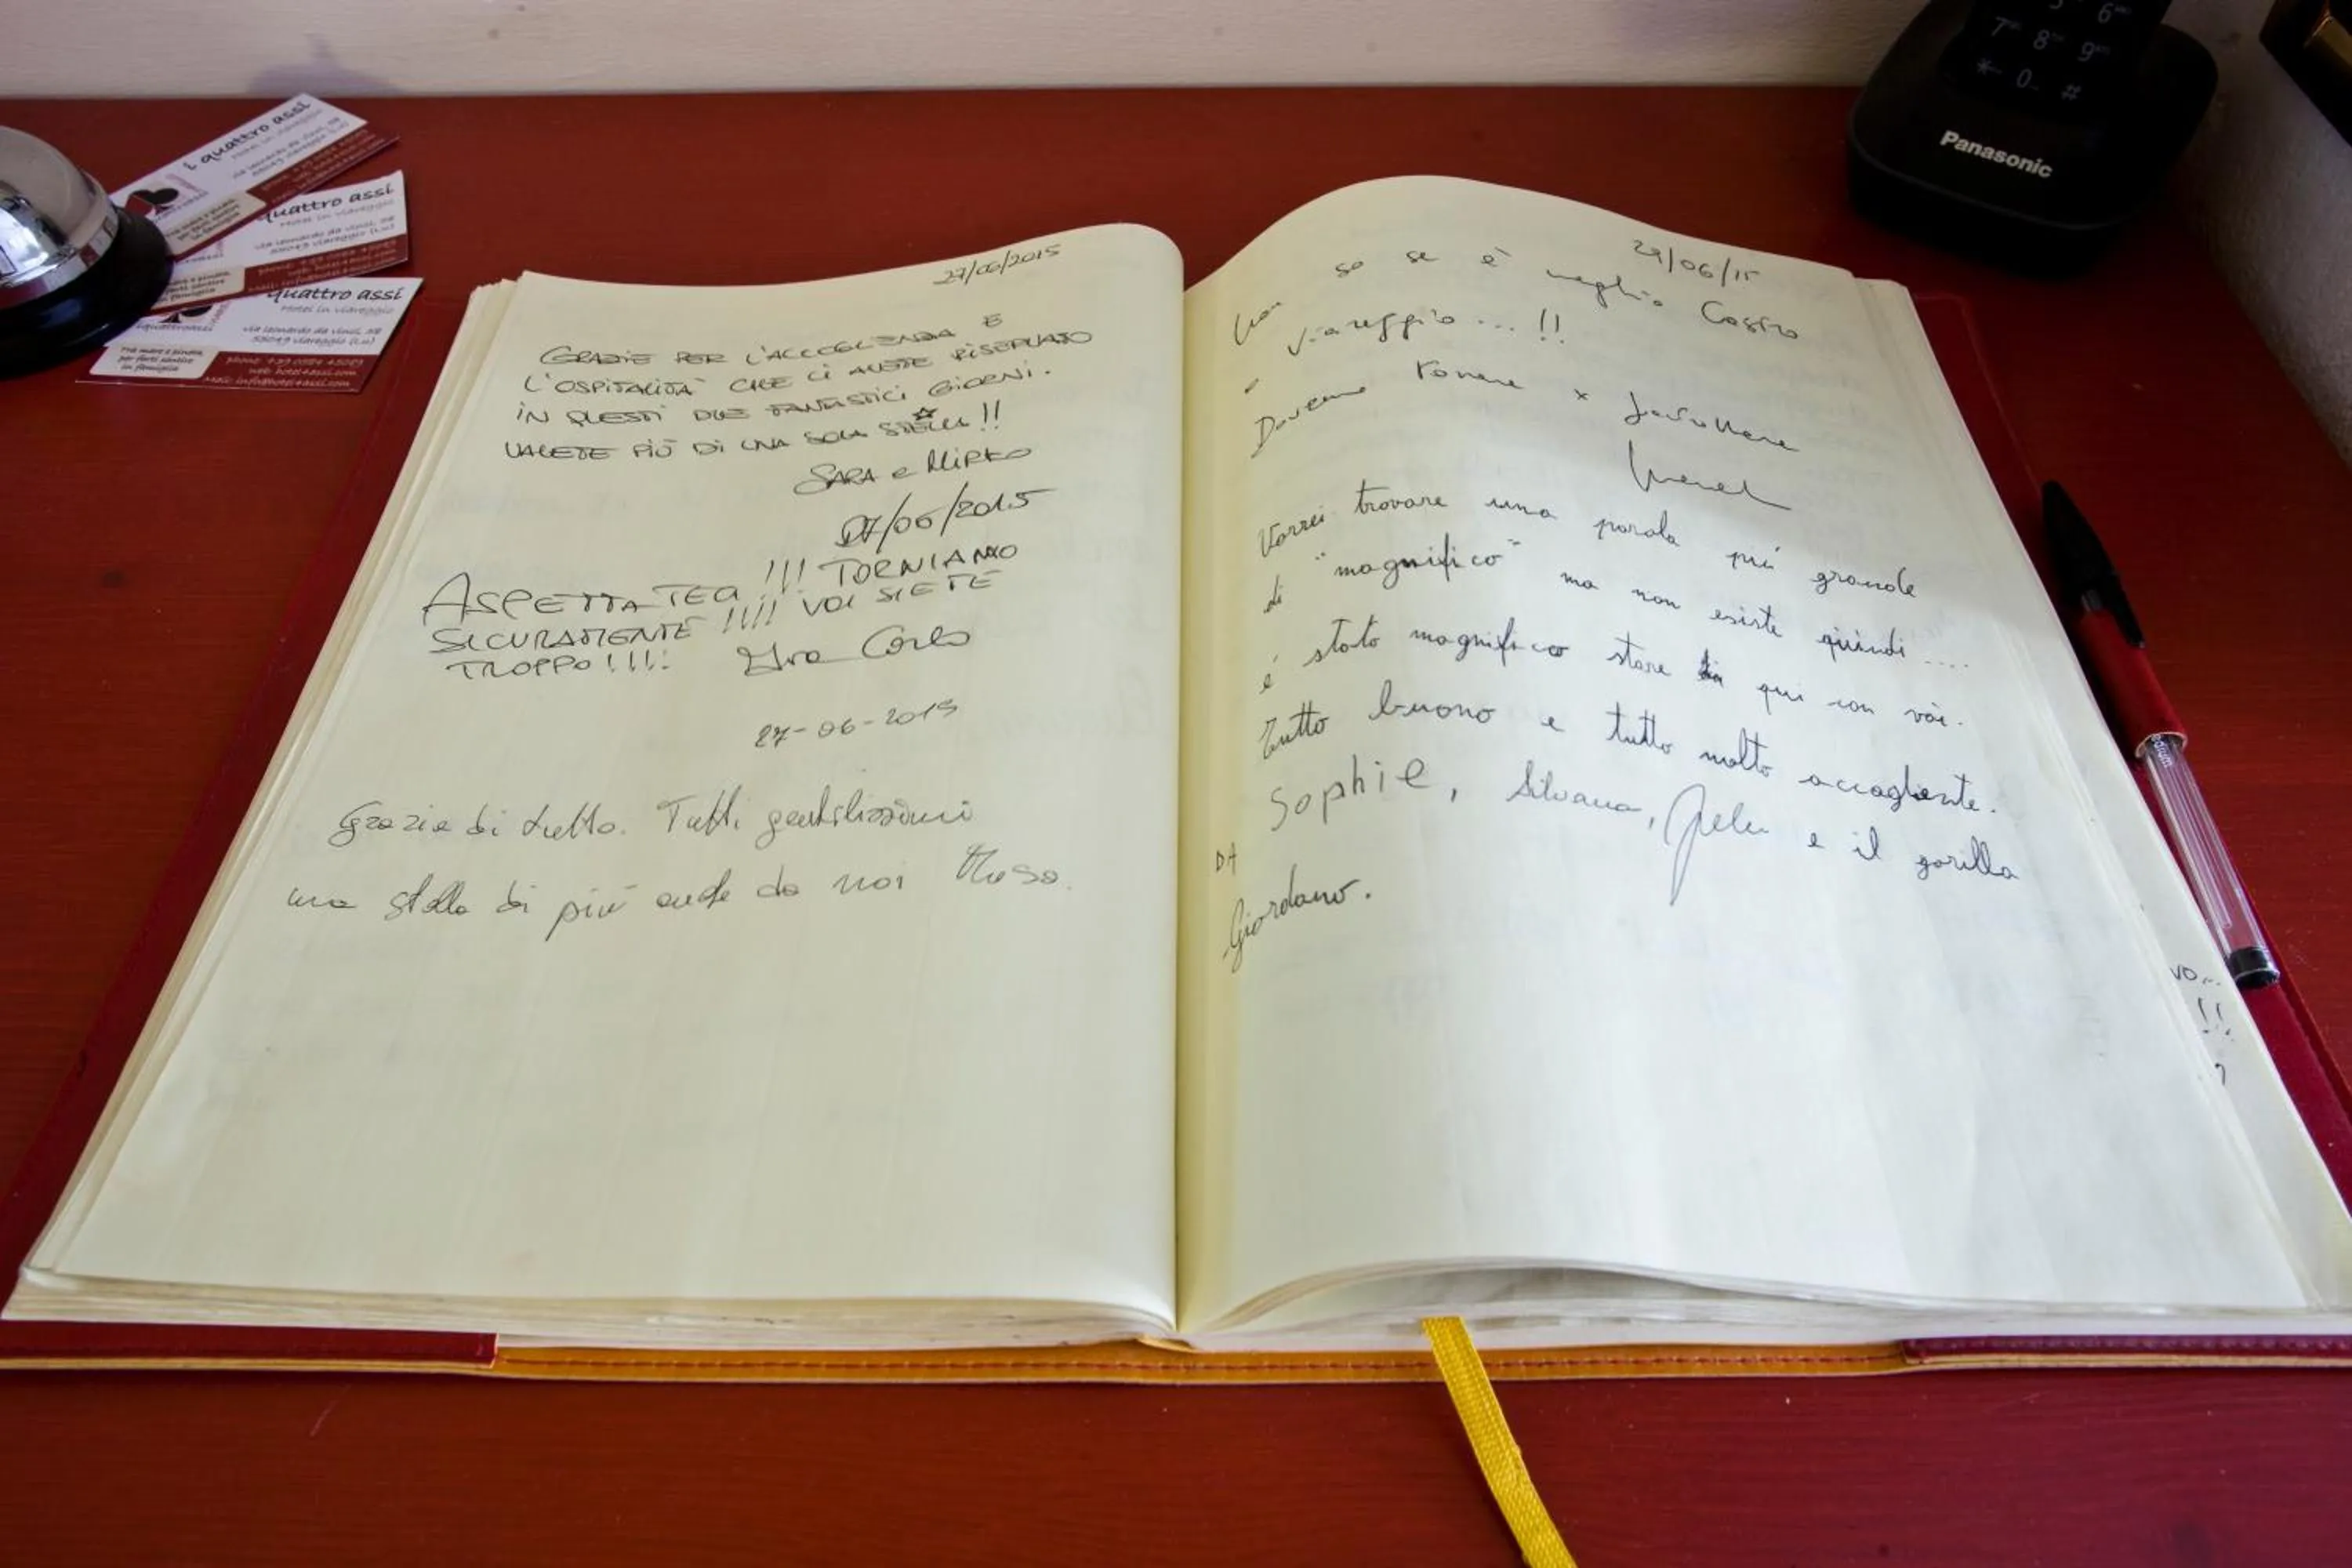 i quattro assi
Hotel in viareggio
via leonardo da vinci, 28
55049 viareggio (Lu)
quattro assi
Hotel in viareggio
via leonardo da vinci, 28
55049 viareggio (Lu)
quattro assi
Hotel in viareggio
via leonardo da vinci, 28
55049 viareggio (Lu)
Tra mare e pineta,
per farti sentire
in famiglia
phone: +39 0584 45089
web: hotel4assi.com
Mail: info@hotel4assi.com
7 8 9
* 0 #
Panasonic
27/06/2015
GRAZIE PER L'ACCOGLIENZA E
L'OSPITALITÀ CHE CI AVETE RISERVATO
IN QUESTI DUE FANTASTICI GIORNI.
VALETE PIÙ DI UNA SOLA STELLA!!
SARA e MIRKO
27/06/2015
ASPETTATECI!!! TORNIAMO
SICURAMENTE!!!! VOI SIETE
TROPPO!!!!
Carlo
27-06-2015
Grazie di tutto. Tutti gentilissimi
una stella di più anche da noi
29/06/15
Non so se è meglio Castro
o Viareggio...!!
Dovremo tornare x
Vorrei trovare una parola più grande
di "magnifico" ma non esiste quindi....
é stato magnifico stare qui con voi.
Tutto buono e tutto molto accogliente.
Sophie, Silvana, e il gorilla
DA
Giordano.
VO...
!!